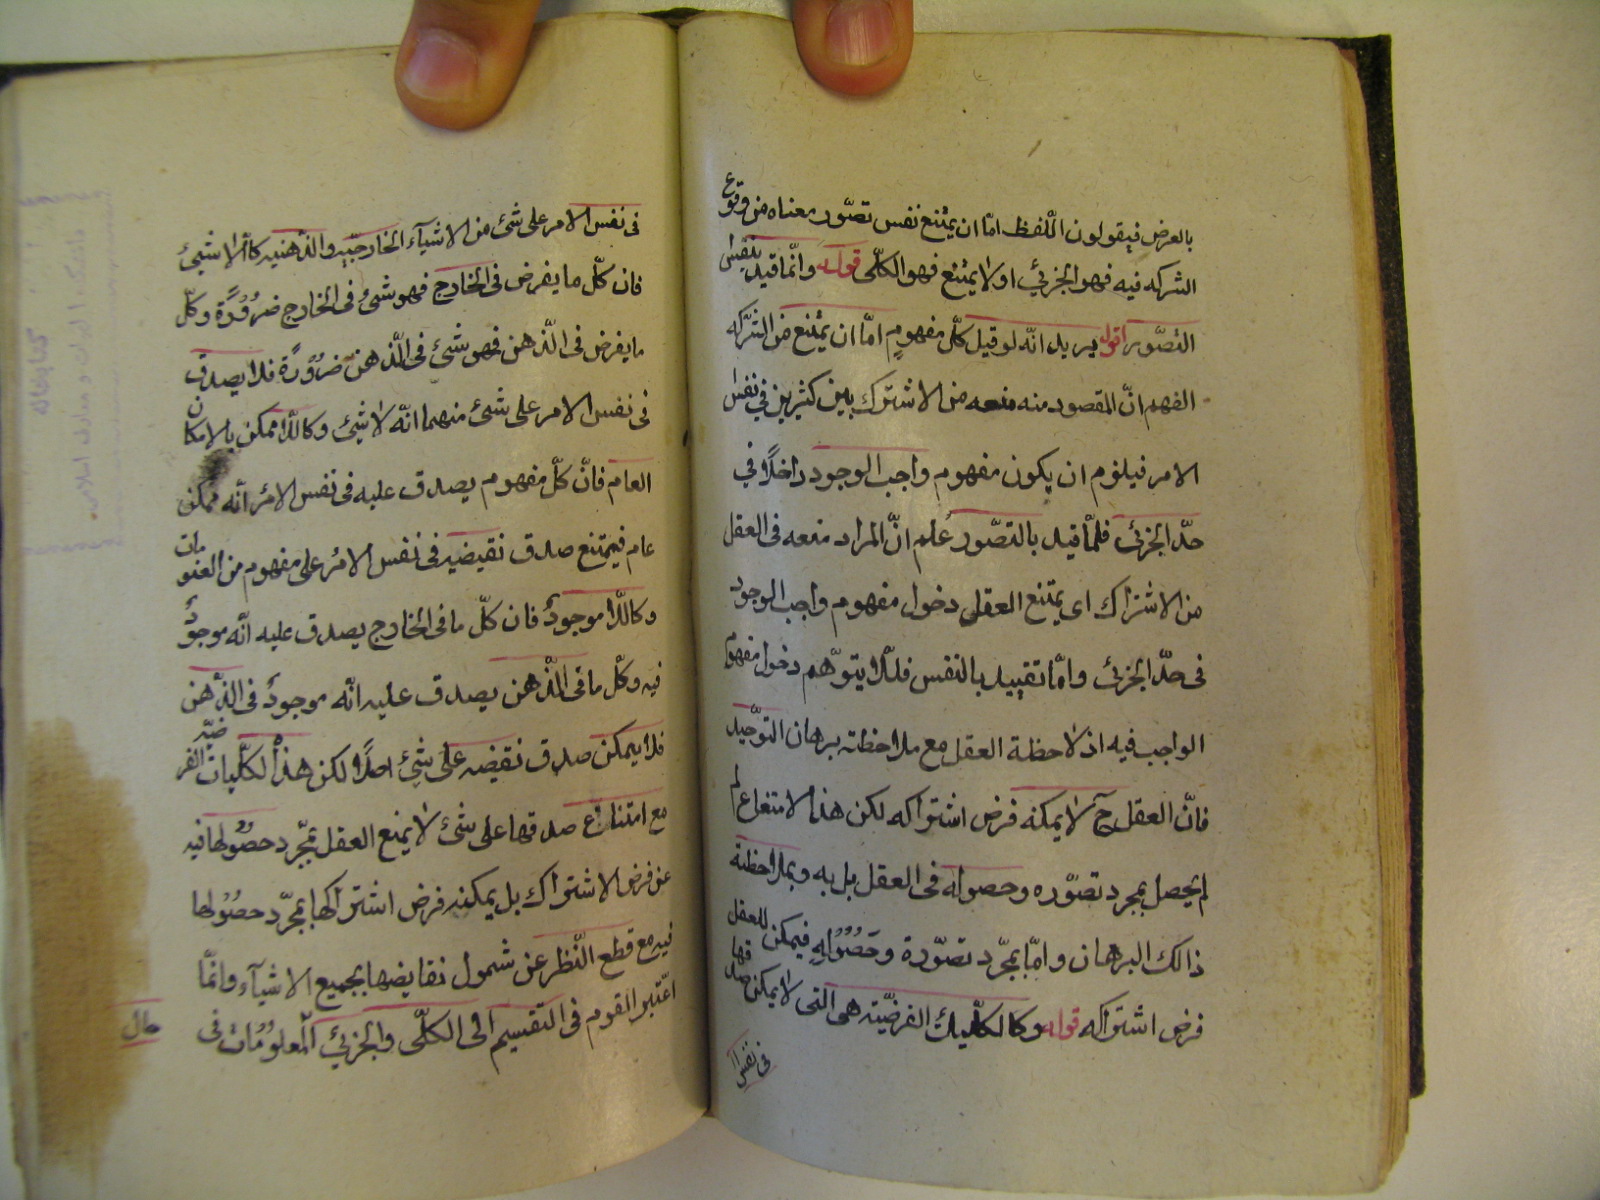 بالعرض فيقولون اللّفظ امّا ان يمتنع نفس تصوّر معناه من وقوع
الشركه فيه فهو الجزئي او لا يمتنع فهو الكلّى قوله وانّما قيد بنفس
التصوّر اقول يريد انّه لو قيل كلّ مفهومٍ امّا ان يمتنع من الشّركه
الفهم انّ المقصود منه منعه من الاشتراك بين كثيرين في نفس
الامر فيلزم ان يكون مفهوم واجب الوجود داخلًا في
حدّ الجزئى فلمّا قيد بالتصّور عُلم انّ المراد منعه فى العقل
من الاشتراك اى يمتنع العقل دخول مفهوم واجب الوجود
فى حدّ الجزئى وامّا تقييد بالنفس فلئلا يتوهّم دخول مفهوم
الواجب فيه اذ لاحظة العقل مع ملاحظته برهان التوحّيد
فانّ العقل ح لا يمكنه فرض اشتراكه لكن هذا الامتناع لم
لم يحصل بمجرد تصوّره وحصوله فى العقل بل به وبملاحظته
ذالك البرهان وامّا بمجّرد تصوّرة وحَصُوُلهِ فيمكن للعقل
فرض اشتراكه قوله وكالكلّيات الفرضيّته هى التى لا يمكن صدقها
فى نفس الا
فى نفس الامر على شئ من الاشيآء الخارجيّه والذّهنيه كاللا شيئ
فان كلّ ما يفرض فى الخارج فهو شئُ فى الخارج ضرُوُرًة وكلّ
ما يفرض فى الّذهن فهو شئ فى الّذهن ضرُوُرًة فلا يصدق
فى نفس الامر على شئ منهما انّه لا شئ وكاللّا ممكن بالامكان
العام فانّ كلّ مفهوم يصدق عليه فى نفس الامُر انّه ممكن
عام فيمتنع صدق نقيضيه فى نفس الامُر على مفهوم من المفهومات
وكاللّا موجودُ فان كلّ ما فى الخارج يصدق عليه انّه موجودُ
فيه وكلّ ما فى الّذهن يصدق عليه انّه موجودُ فى الذّهن
فلا يمكن صدق نقيضه على شئِ اصلًا لكن هذه الكلّيات الفرضيّه
مع امتناع صدقها على شئ لا يمنع العقل بمجّرد حصُوُلها فيه
عن فرض الاشتراك بل يمكنه فرض اشتراكها بمجّرد حصُوُلها
فيه مع قطع النّظر عن شمول نقايضها بجميع الاشيآء وانمّا
اعتبر القوم فى التقسيم الى الكلّى والجزئى المعلوُمُات فى
حال
كتابخانه
دانشكده الهيات و معارف اسلامى